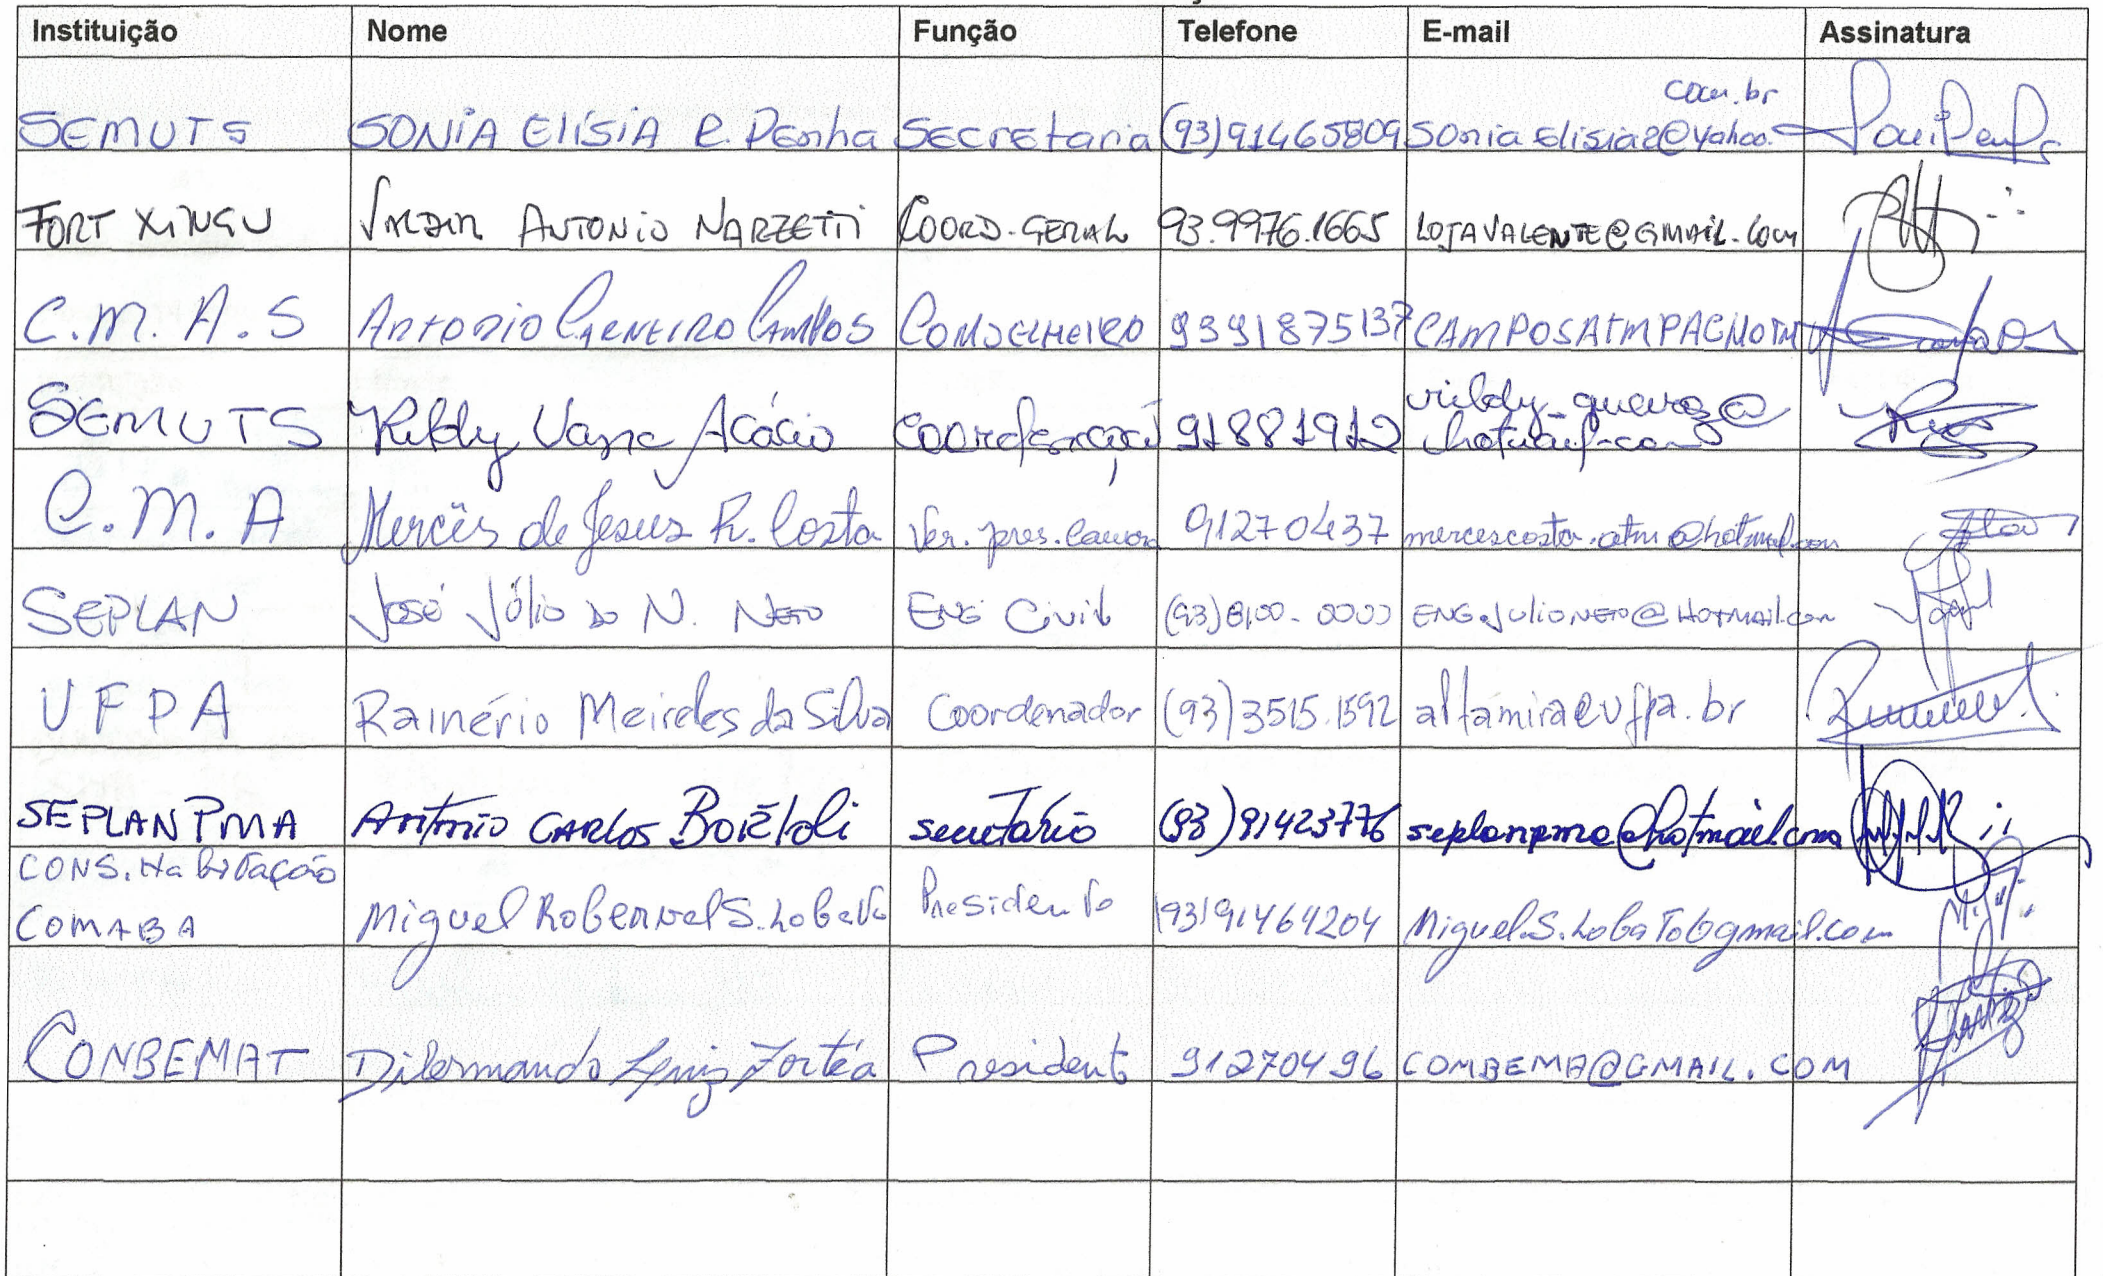 Instituição Nome Função Telefone E-mail Assinatura
com.br
SEMUTS SONIA ELISIA P. Penha Secretaria (93)91465809 soniaelisia2@yahoo.
FORT XINGU ANTONIO NARZETTI COORD. GERAL 93.9976.1665 LOJAVALENTE@GMAIL.COM
C.M.A.S ANTONIO CARNEIRO CAMPOS CONSELHEIRO 9391875137
SEMUTS Acácio 91881912
hotmail.com
C.M.A Mercês de Jesus R. Costa Ver. pres. 91270437 mercescosta.atm@hotmail.com
SEPLAN José Júlio do N. Neto Eng Civil (93)8100-0000 ENG.JULIONETO@HOTMAIL.COM
UFPA Rainério Meireles da Silva Coordenador (93)3515.1592 altamira@ufpa.br
SEPLAN PMA Antonio CARLOS Bortoli secretário (93)91423776 seplanpma@hotmail.com
CONS. Habitação
COMABA Miguel S. Lobato Presidente (93)91464204 MiguelS.Lobato6@gmail.com
CONBEMAT Dilermando Presidente 91270496 COMBEMA@GMAIL.COM